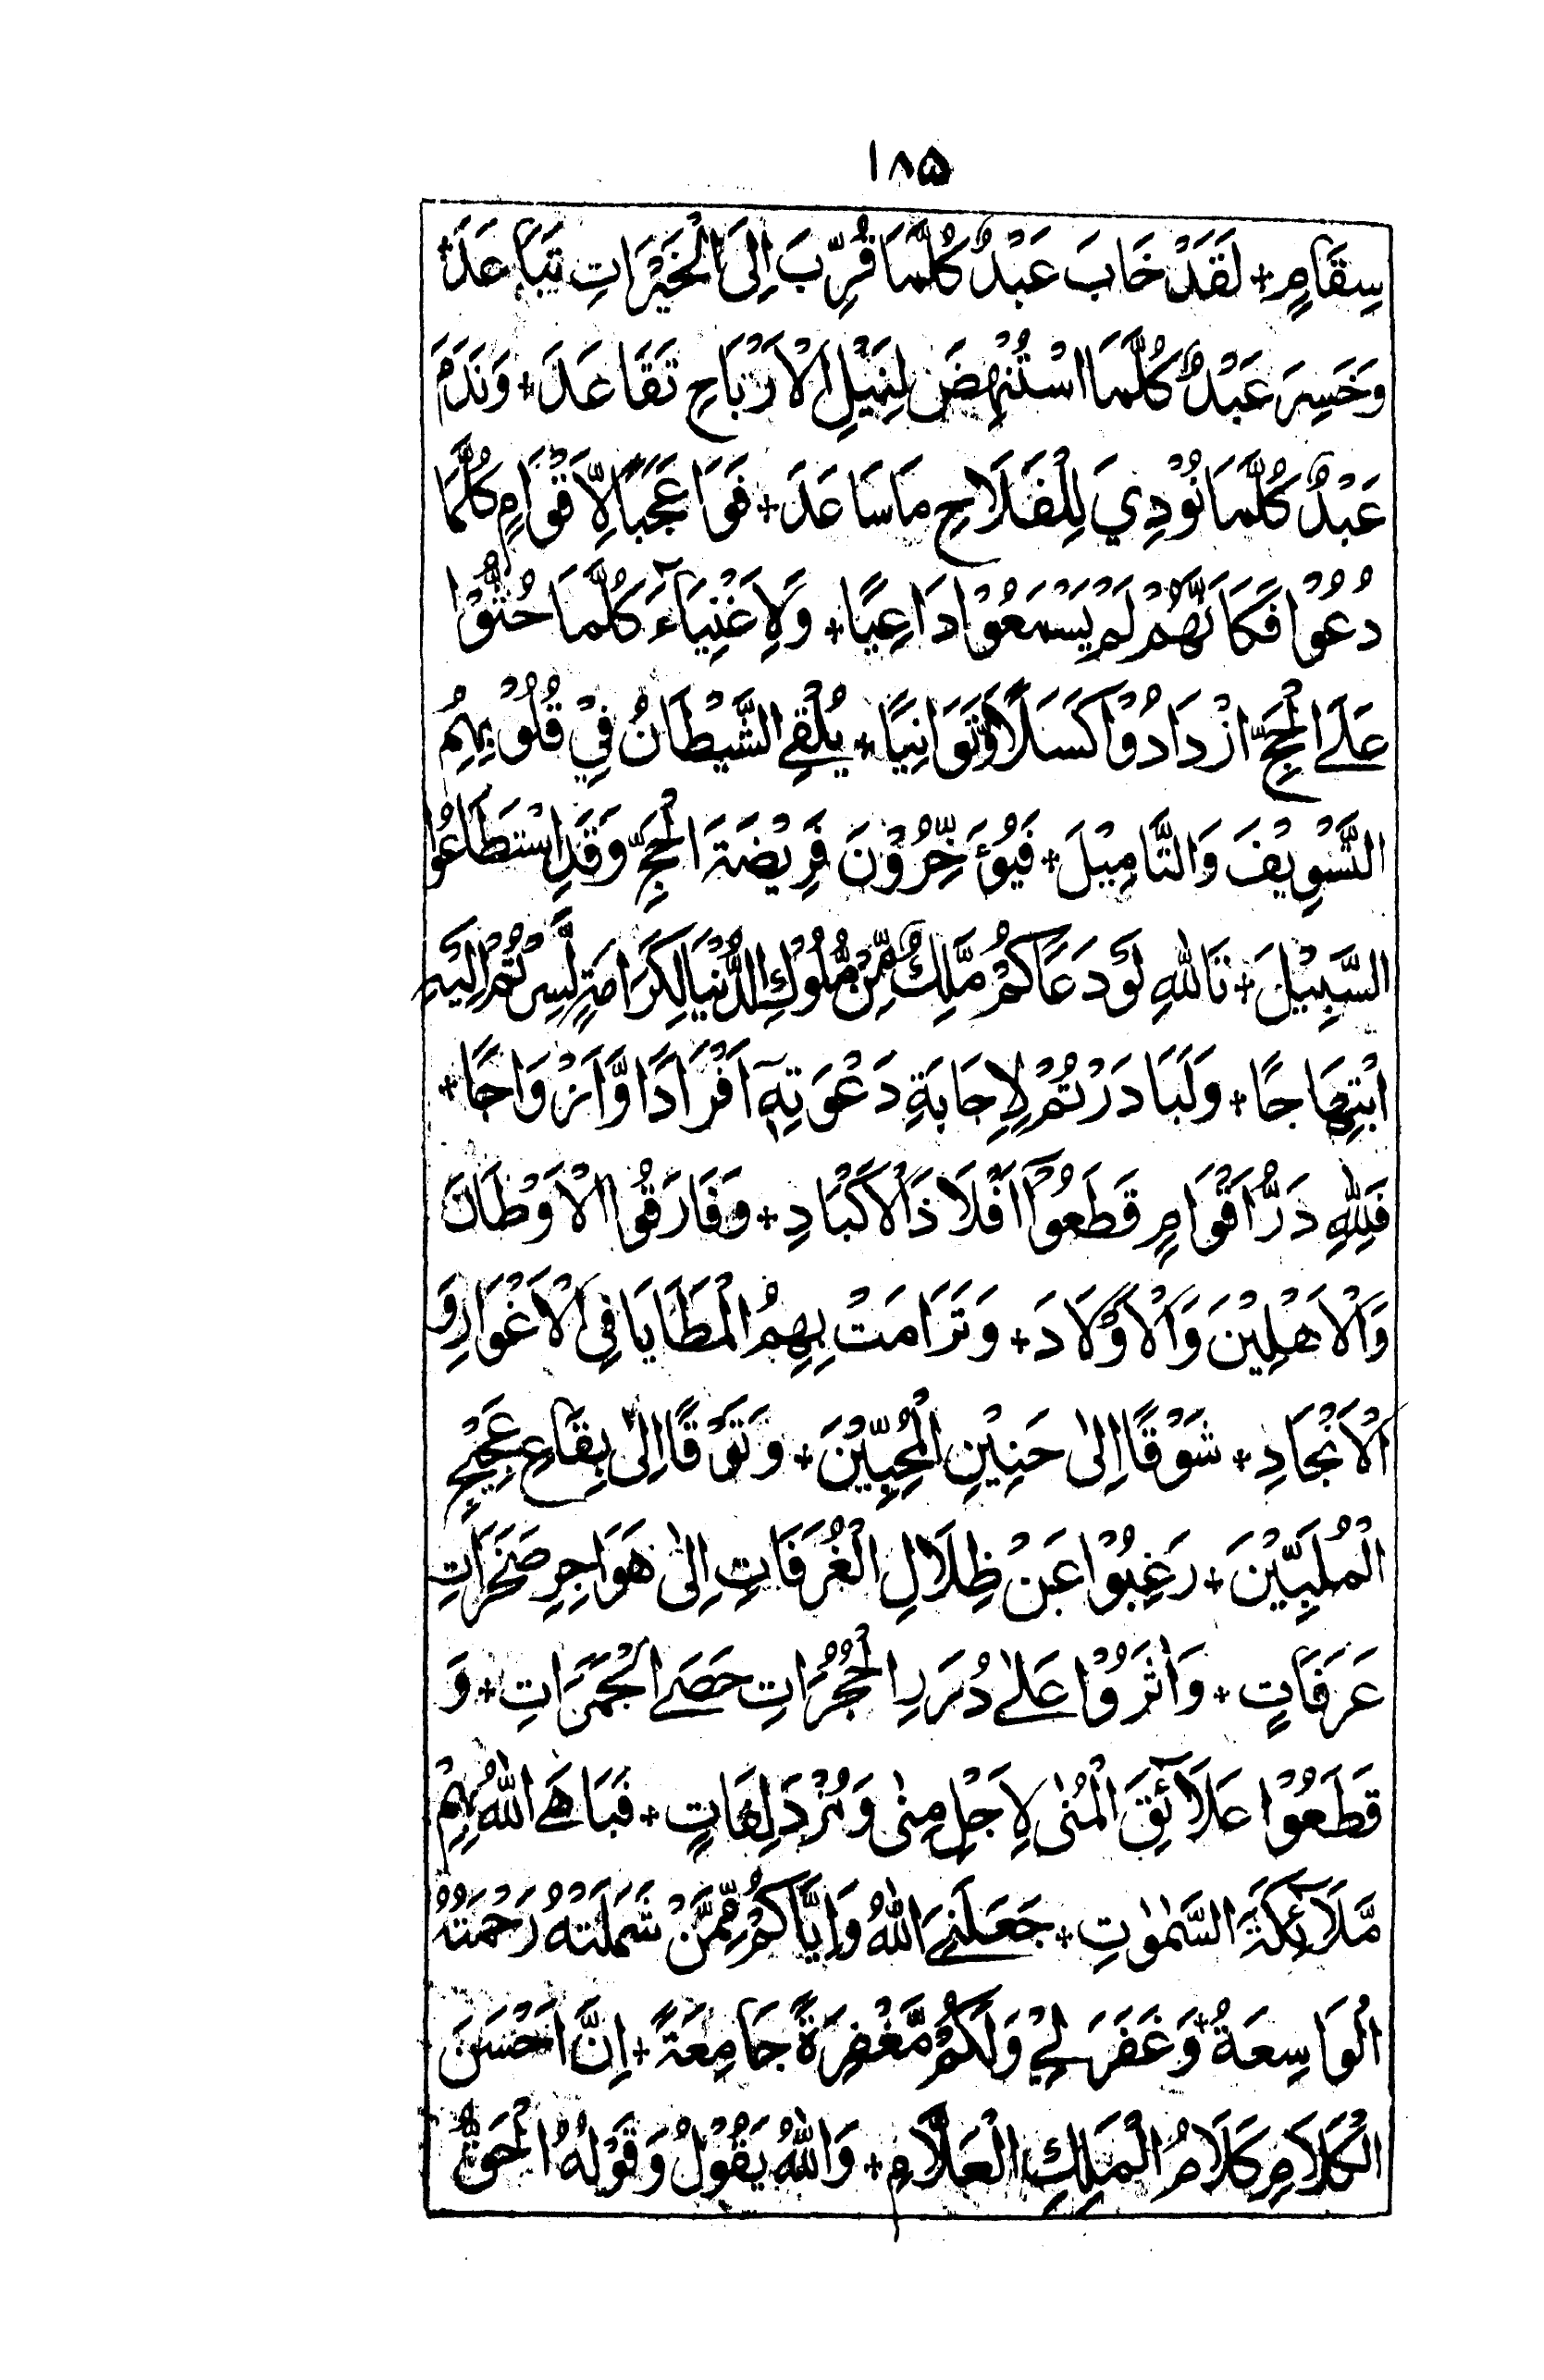 ۱۸۵
سِقَامٍ + لَقَدْ خَابَ عَبْدٌ كُلَّمَا قُرِّبَ اِلَى الْخَيْرَاتِ تَبَاعَدَ +
وَخَسِرَ عَبْدٌ كُلَّمَا اسْتُنْهِضَ لِنَيْلِ الْاَرْبَاحِ تَقَاعَدَ + وَنَدَمَ
عَبْدٌ كُلَّمَا نُوْدِيَ لِلْفَلَاحِ مَا سَاعَدَ + فَوَا عَجَبًا لِاَقْوَامٍ كُلَّمَا
دُعُوْا فَكَاَنَّهُمْ لَمْ يَسْمَعُوْا دَاعِيًا + وَلِاَغْنِيَآءَ كُلَّمَا حُثُّوْا
عَلَے الْحَجِّ ازْدَادُوْا كَسَلًا وَّتَوَانِيًا + يُلْقِے الشَّيْطَانُ فِيْ قُلُوْبِهِمُ
التَّسْوِيْفَ وَالتَّامِيْلَ + فَيُؤَخِّرُوْنَ فَرِيْضَةَ الْحَجِّ وَقَدِ اسْتَطَاعُوا
السَّبِيْلَ + تَاللّٰهِ لَوْ دَعَاكُمْ مَّلِكٌ مِّنْ مُّلُوْكِ الدُّنْيَا لِكَرَامَةٍ لَّسِرْتُمْ اِلَيْهِ
ابْتِهَاجًا + وَلَبَادَرْتُمْ لِاِجَابَةِ دَعْوَتِهٖٓ اَفْرَادًا وَّاَزْوَاجًا +
فَلِلّٰهِ دَرُّ اَقْوَامٍ قَطَعُوْٓا اَفْلَاذَ الْاَكْبَادِ + وَفَارَقُوا الْاَوْطَانَ
وَالْاَهْلِيْنَ وَالْاَوْلَادَ + وَتَرَامَتْ بِهِمُ الْمَطَايَا فِى الْاَغْوَارِ وَ
الْاَنْجَادِ + شَوْقًا اِلٰى حَنِيْنِ الْمُحِبِّيْنَ + وَتَوْقًا اِلٰى بِقَاعِ عَجِيْجِ
الْمُلَبِّيْنَ + رَغِبُوْا عَنْ ظِلَالِ الْغُرَفَاتِ اِلٰى هَوَاجِرِ صَخَرَاتِ
عَرَفَاتٍ + وَاٰثَرُوْا عَلٰے دُرَرِ الْحُجُرَاتِ حَصَے الْجَمَرَاتِ + وَ
قَطَعُوْا عَلَآئِقَ الْمُنٰى لِاَجْلِ مِنٰى وَمُزْدَلِفَاتٍ + فَبَاهَے اللّٰهُ بِهِمْ
مَّلَآئِكَةَ السَّمٰوٰتِ + جَعَلَنِيَ اللّٰهُ وَاِيَّاكُمْ مِّمَّنْ شَمَلَتْهُ رَحْمَتُهُ
الْوَاسِعَةُ وَغَفَرَ لِيْ وَلَكُمْ مَّغْفِرَةً جَامِعَةً + اِنَّ اَحْسَنَ
الْكَلَامِ كَلَامُ الْمَلِكِ الْعَلَّامِ + وَاللّٰهُ يَقُوْلُ وَقَوْلُهُ الْحَقُّ